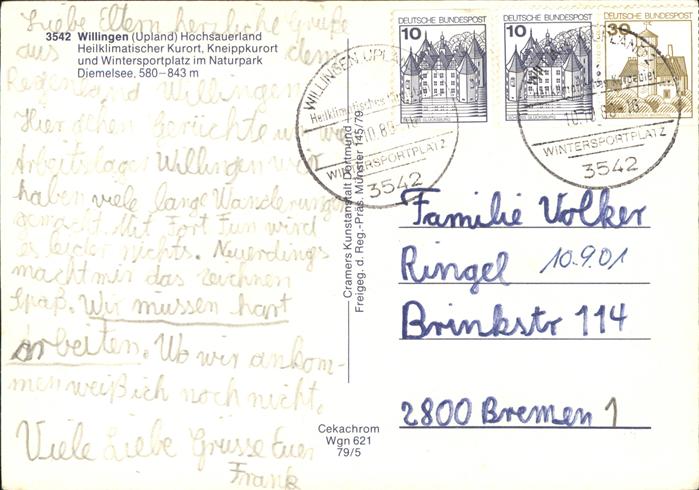 Liebe Eltern herzliche Grüße
aus dem
3542 Willingen (Upland) Hochsauerland
Heilklimatischer Kurort, Kneippkurort
und Wintersportplatz im Naturpark
Diemelsee, 580–843 m
Regenland Willingen
Hier gehen Gerüchte um wo
Arbeitslager Willingen wir
haben viele lange Wanderungen
gemacht Mit Fort Fun wird
es leider nichts. Neuerdings
macht mir das zeichnen
Spaß. Wir müssen hart
arbeiten. Wo wir ankom-
men weiß ich noch nicht.
Viele Liebe Grüsse Euer
Frank
Cramers Kunstanstalt Dortmund
Freigeg. d. Reg.-Präs. Münster 145/79
Cekachrom
Wgn 621
79/5
DEUTSCHE BUNDESPOST
10
DEUTSCHE BUNDESPOST
10
DEUTSCHE BUNDESPOST
30
WILLINGEN, UPLAND
Heilklimatischer
WINTERSPORTPLATZ
3542
WINTERSPORTPLATZ
3542
Familie Volker
Ringel 10.9.01
Brinkstr 114
2800 Bremen 1